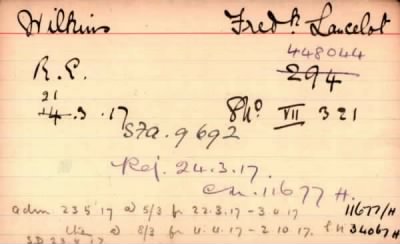 Wilkins Fred^k Lancelot
448044
R.E. 294
21
14.3.17 Pho VII 321
S7a.9692
Rej. 24.3.17.
en.11677 H.
adm 23 5 17 @ 5/3 fr 22.3.17 - 3.4.17 11677/H
@ 8/3 fr 4.4.17 - 2.10.17. 34067 H